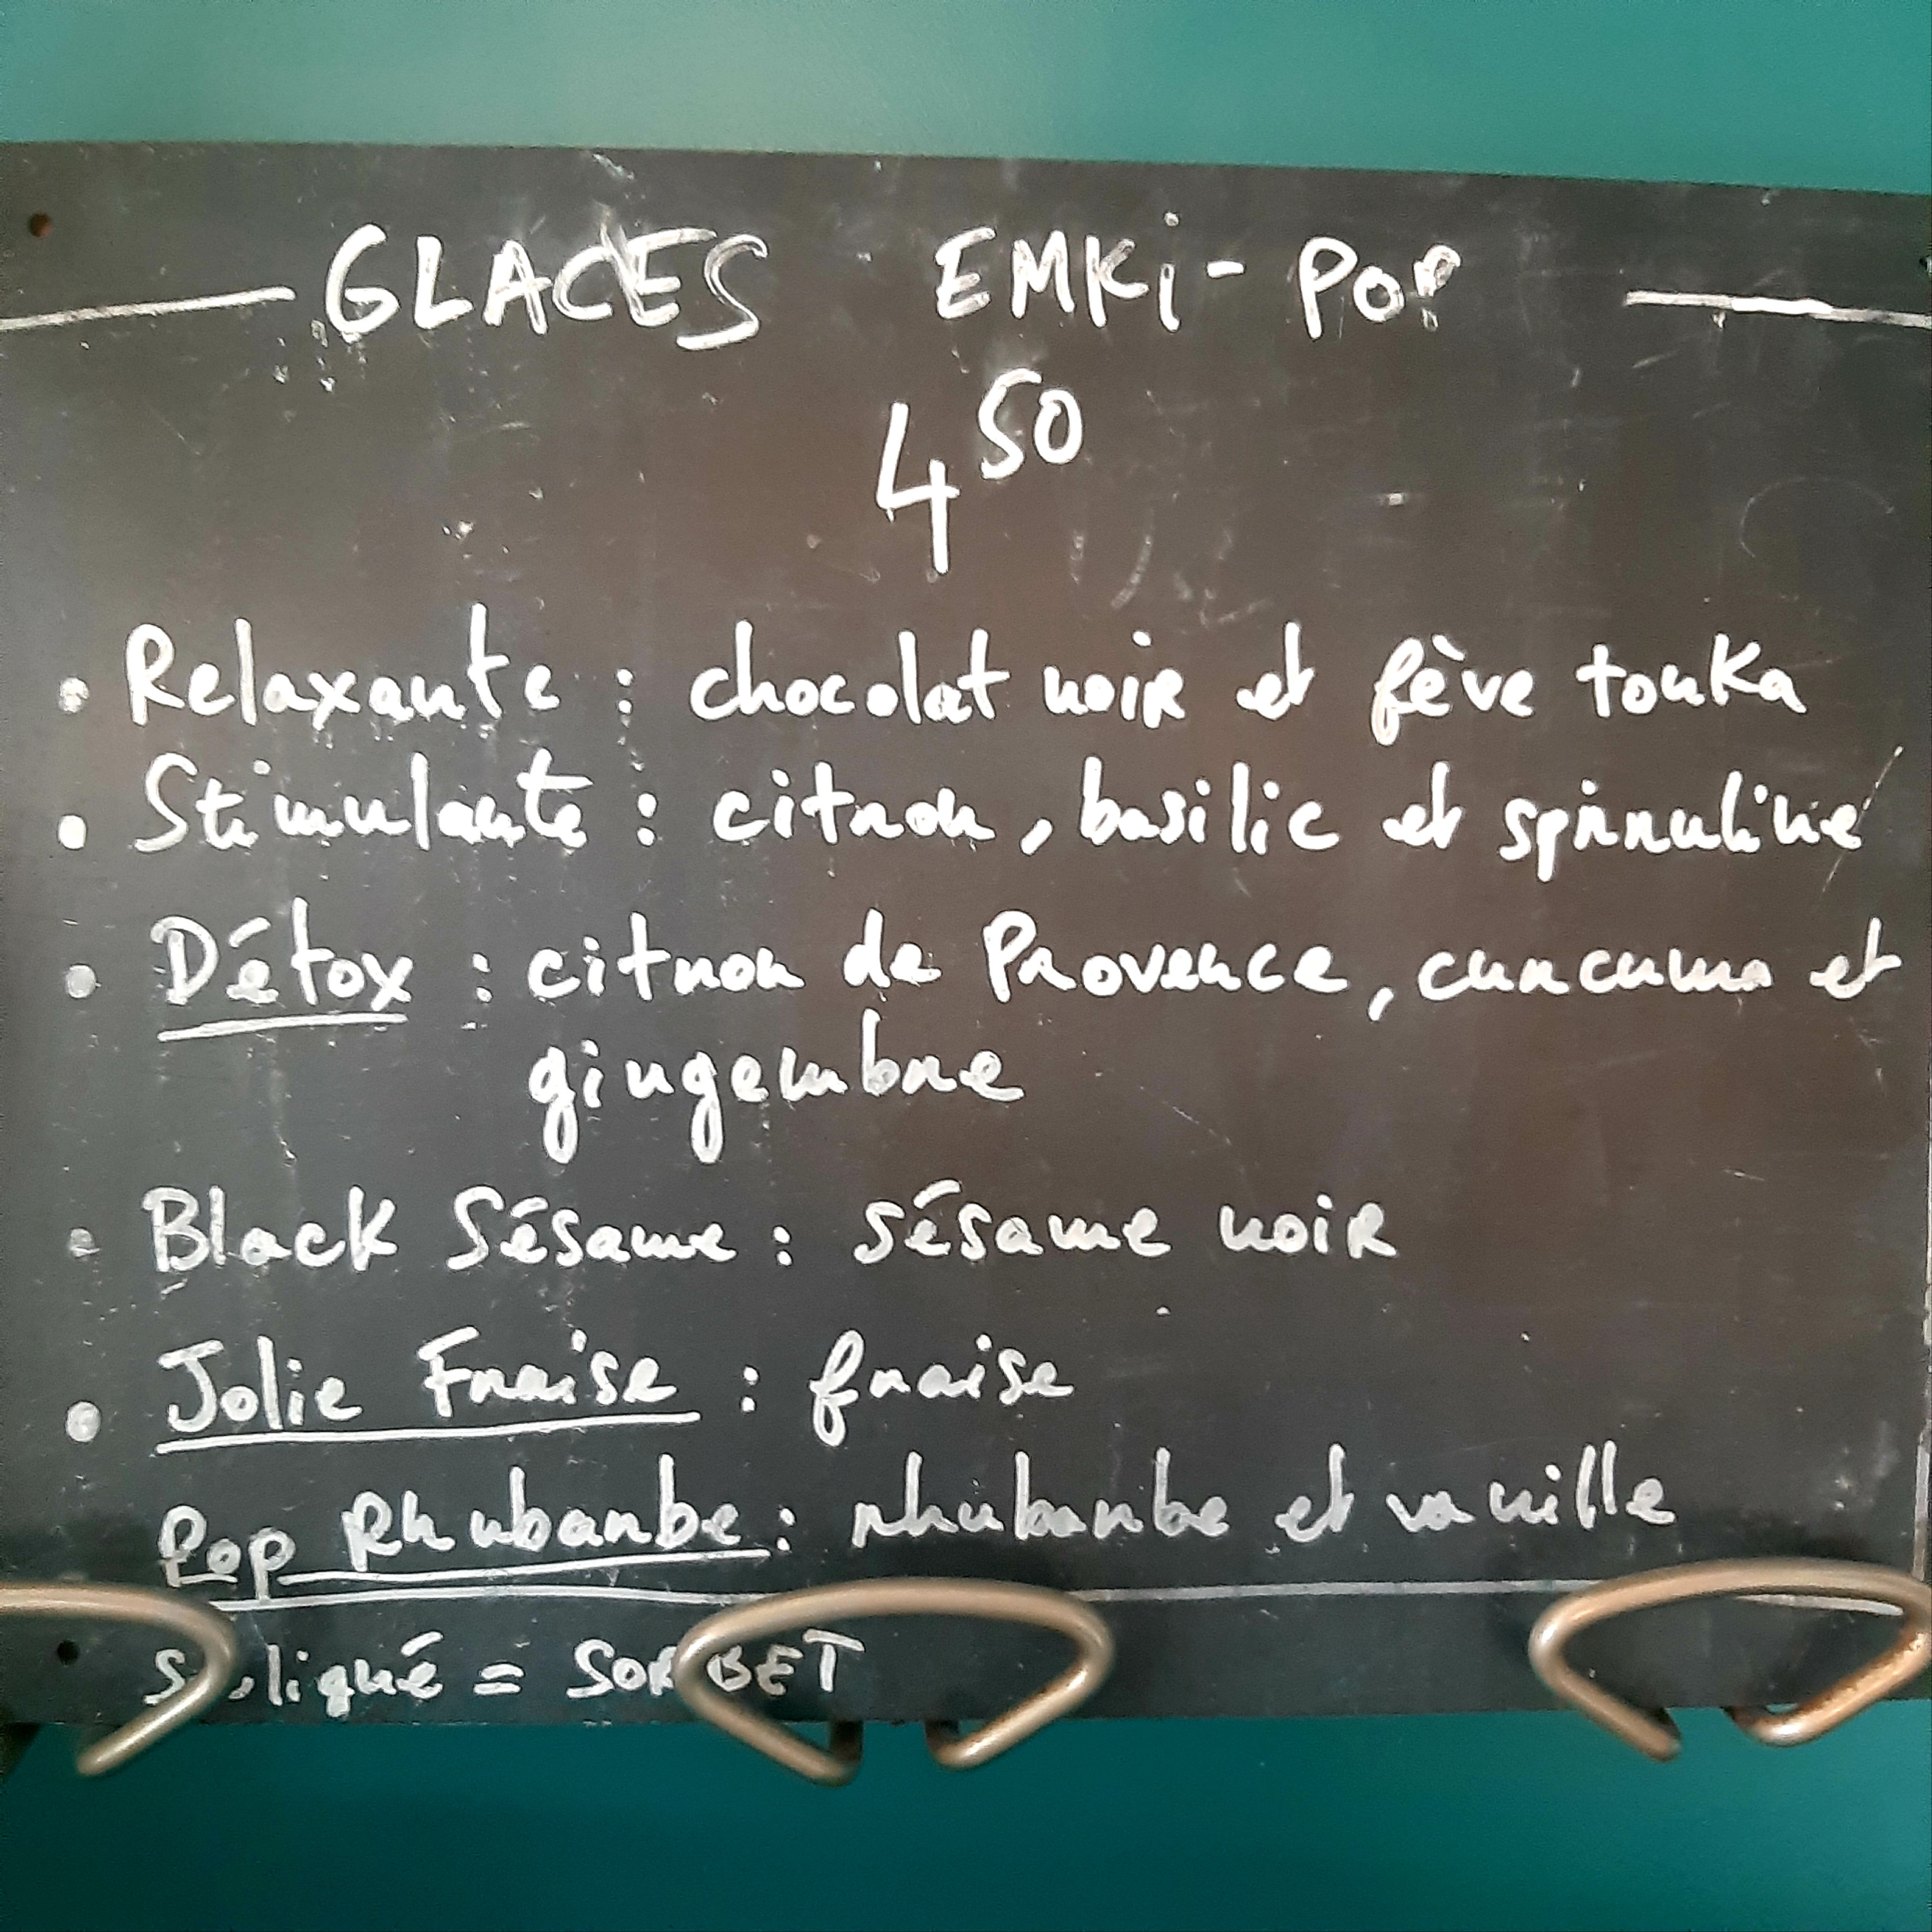 GLACES EMKi-POP
4 50
• Relaxante : chocolat noir et fève tonka
• Stimulante : citron, basilic et spiruline
• Détox : citron de Provence, curcuma et
gingembre
• Black Sésame : sésame noir
• Jolie Fraise : fraise
Pop Rhubarbe : rhubarbe et vanille
= SORBET